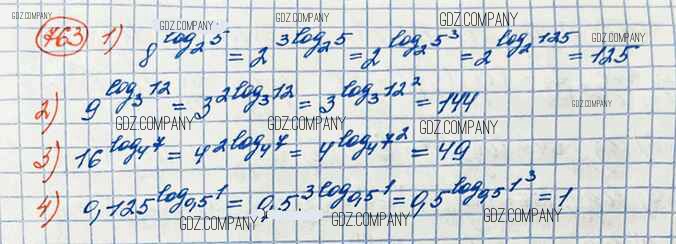 GDZ.COMPANY GDZ.COMPANY GDZ.COMPANY GDZ.COMPANY
763 1) 8^{log_2 5} = 2^{3log_2 5} = 2^{log_2 5^3} = 2^{log_2 125} = 125
GDZ.COMPANY GDZ.COMPANY GDZ.COMPANY
2) 9^{log_3 12} = 3^{2log_3 12} = 3^{log_3 12^2} = 144
GDZ.COMPANY
GDZ.COMPANY GDZ.COMPANY GDZ.COMPANY
3) 16^{log_4 7} = 4^{2log_4 7} = 4^{log_4 7^2} = 49
4) 0,125^{log_{0,5} 1} = 0,5^{3log_{0,5} 1} = 0,5^{log_{0,5} 1^3} = 1
GDZ.COMPANY GDZ.COMPANY GDZ.COMPANY